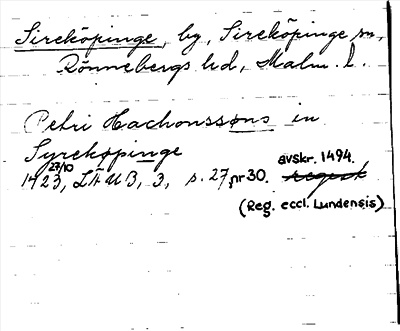 Sireköpinge, by, Sireköpinge sn,
Rönnebergs hd, Malm. l.
Petri Hachonssøns in
Syrekøpinge
27/10
1423, LÄUB, 3, s. 27, nr 30. avskr. 1494.
(Reg. eccl. Lundensis)